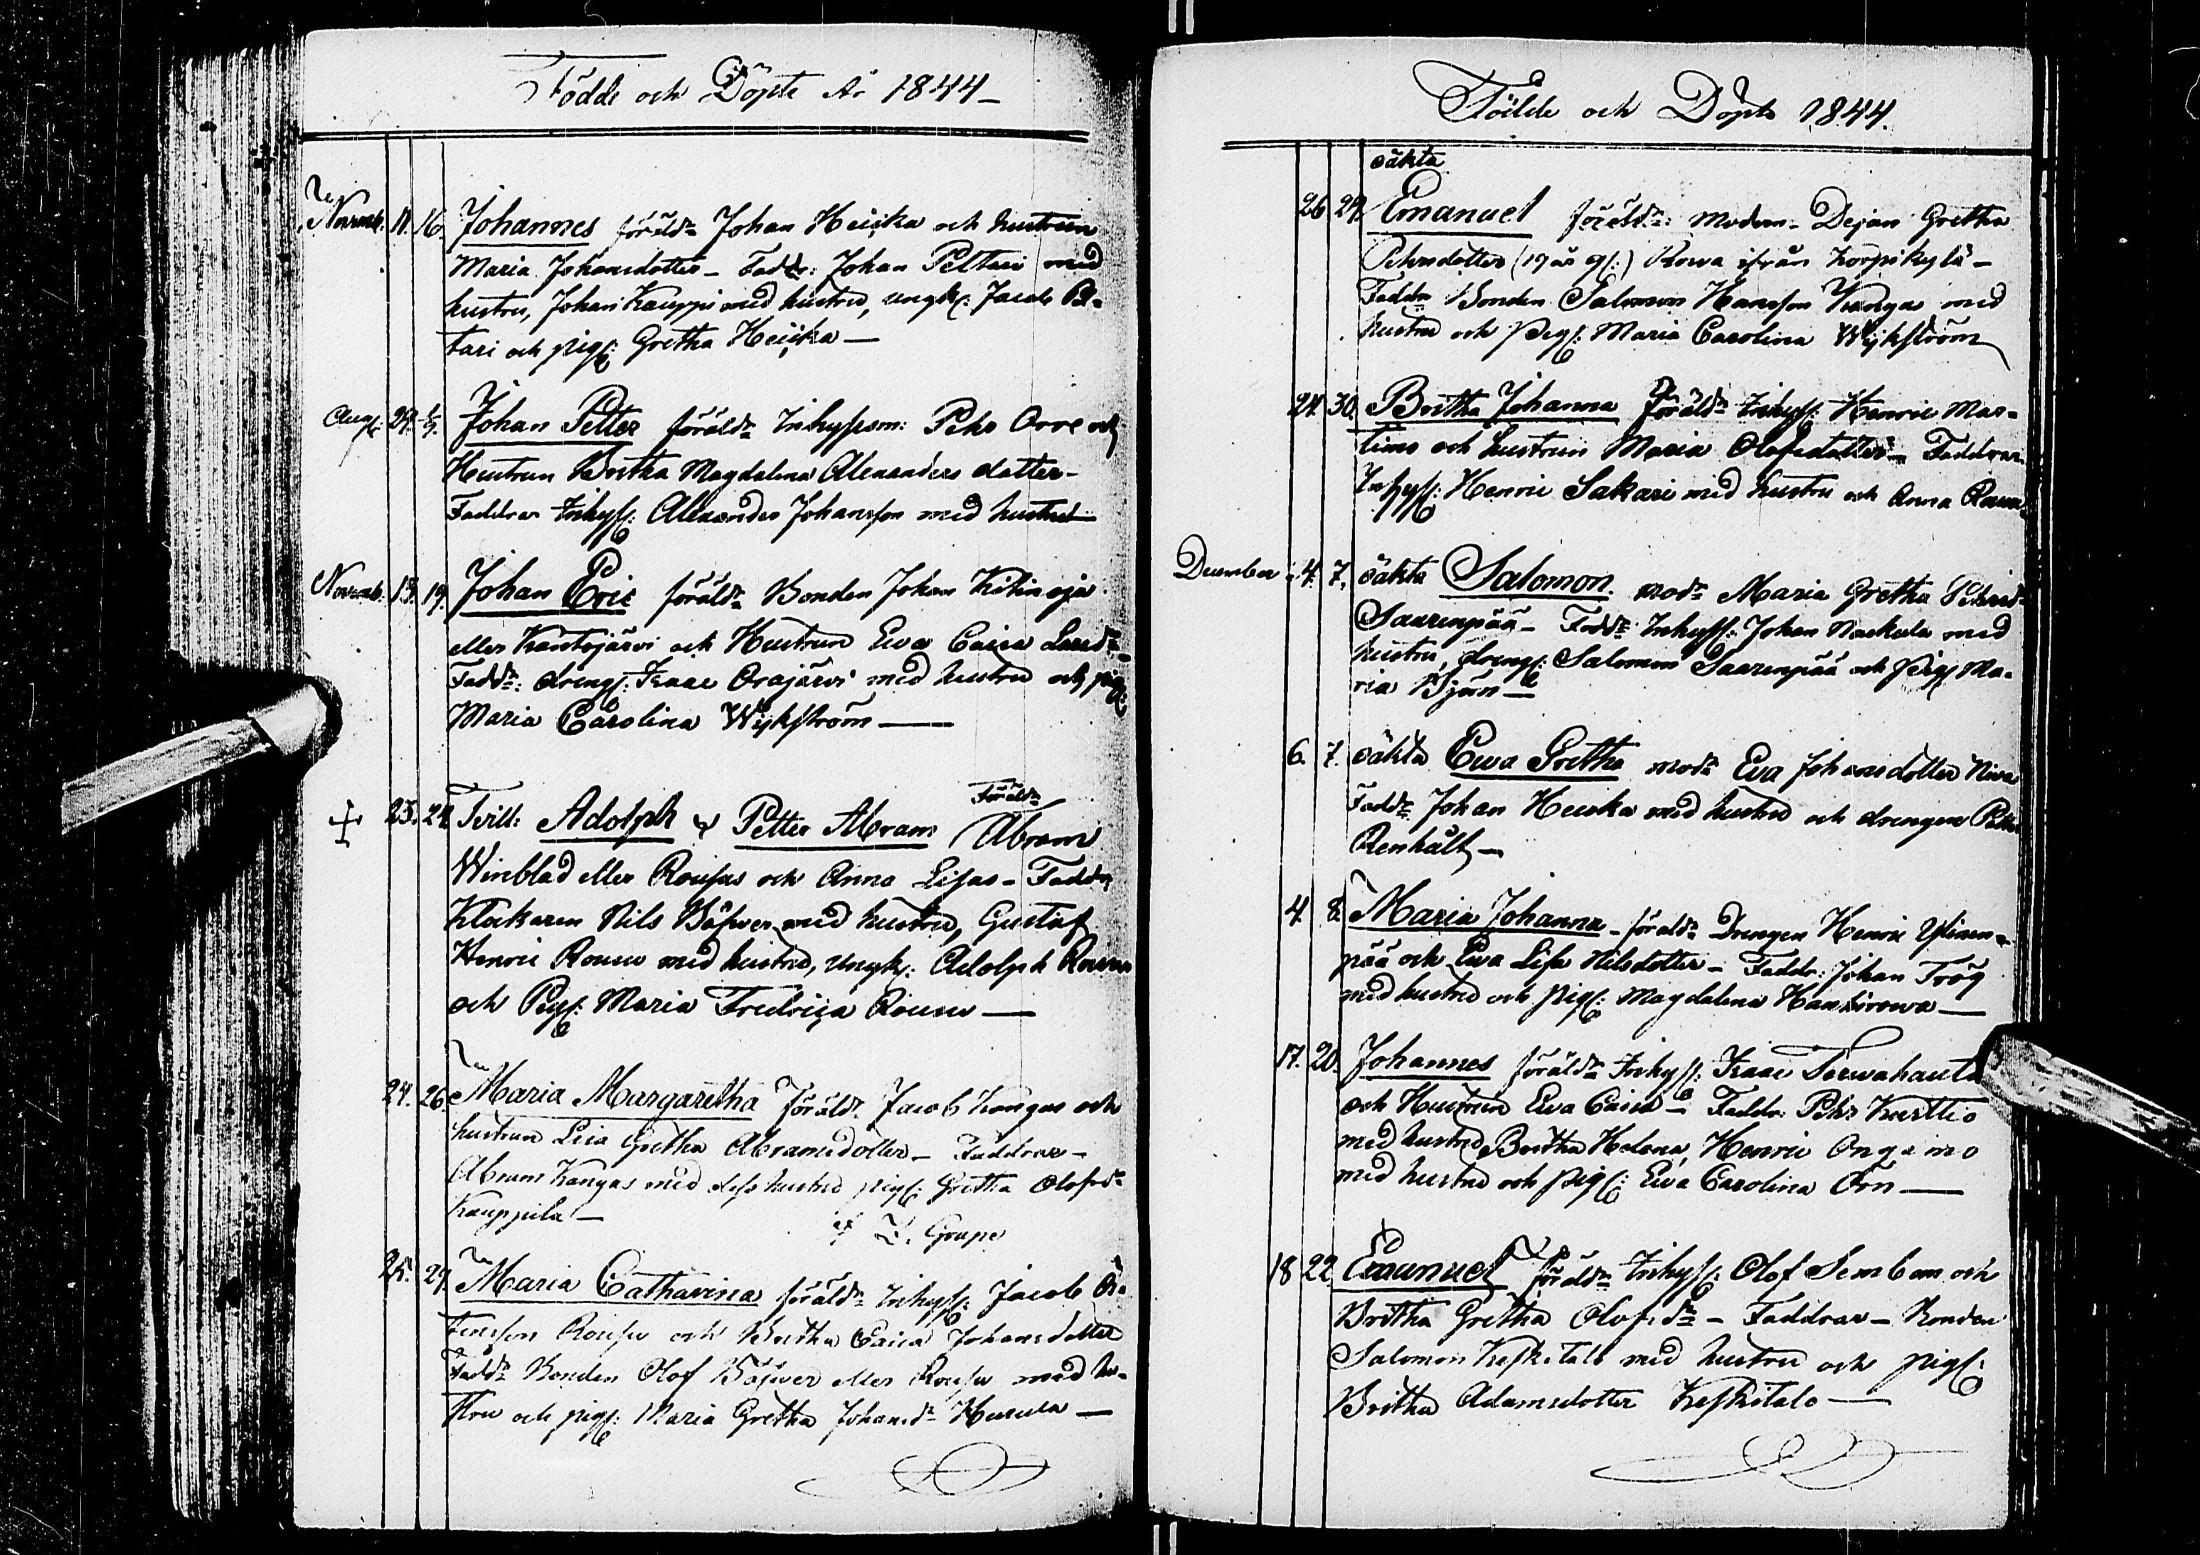 Födde och Döpte År 1844
Novemb. 11. 16. Johannes föräldr Johan Heiska och hustrun
Maria Johansdotter – Faddr: Johan Peltari med
hustru, Johan Kauppi med hustru, ungk: Jacob Pel-
tari och pig: Gretha Heiska —
Aug: 29. Johan Petter föräldr Inhysesm: Pehr Orre och
Hustrun Britha Magdalena Alexanders dotter –
Faddrar Inhys: Allexander Johansson med hustru
Novemb. 13. 19. Johan Eric föräldr Bonden Johan
eller Kantojärvi och Hustrun Eva Caisa Larsdr
Faddr: dreng: Isaac Orajärvi med hustru och pig:
Maria Carolina Wijkström —
23. 24. Tvill: Adolph & Petter Abram Föräldr Abram
Winblad eller Rousus och Anna Lisas – Faddr
Klockaren Nils Bäfwer med hustru, Gustaf
Henric Rousu med hustru, ungk: Adolph Rousu
och Pig: Maria Fredrica Rousu —
24. 26. Maria Margaretha Föräldr. Jacob Kangas och
hustrun Lisa Gretha Abramsdotter – Faddrar –
Abram Kangas med dess hustru pig: Gretha Olofsdr
Kauppila —
af L. Grape
25. 29. Maria Catharina föräldr Inhys: Jacob Ös-
tensson Rousu och Britha Caisa Johansdotter
Faddr Bonden Olof Bäfwer eller Rousu med hu-
stru och pig: Maria Gretha Johansdr —
Födde och Döpte 1844.
oäkta
26 29. Emanuel föräldr: modren – Dejan Gretha
Pehrsdotter (19 år g:) Rowa ifrån Korpikylä –
Faddr Bonden Salomon Hansson Kangas med
hustru och pig: Maria Carolina Wijkström
24. 30. Britha Johanna föräldr Inhys: Henric Mar-
timo och hustrun Maria Olofsdotter – Faddrar
Inhys: Henric Sakari med hustru och Anna
December 4. 7. oäkta Salomon. modr Maria Gretha Pehrsdr
Saarenpää – Faddr Inhys: Johan med
hustru, dreng: Salomon Saarenpää och Pig: Ma-
ria Björn —
6. 7. oäkta Ewa Gretha modr Eva Johansdotter Niva
Faddr Johan Heiska med hustru och drengen Petter
Renhält —
4. 8. Maria Johanna – föräldr Drengen Henric Ylinen-
pää och Ewa Lisa Nilsdotter – Faddr: Johan Trög
med hustru och pig: Magdalena
17. 20. Johannes föräldr Inhys: Isaac Terwahauta
och Hustrun Ewa Caisa – Faddr: Pehr Kurttio
med hustru Britha Helena, Henric Ongamo
med hustru och pig: Ewa Carolina Örn —
18 22. Emanuel föräldr Inhys: Olof Semban och
Britha Gretha Olofsdr – Faddrar – Bonden
Salomon Keskitalo med hustru och pig:
Britha Adamsdotter Keskitalo —